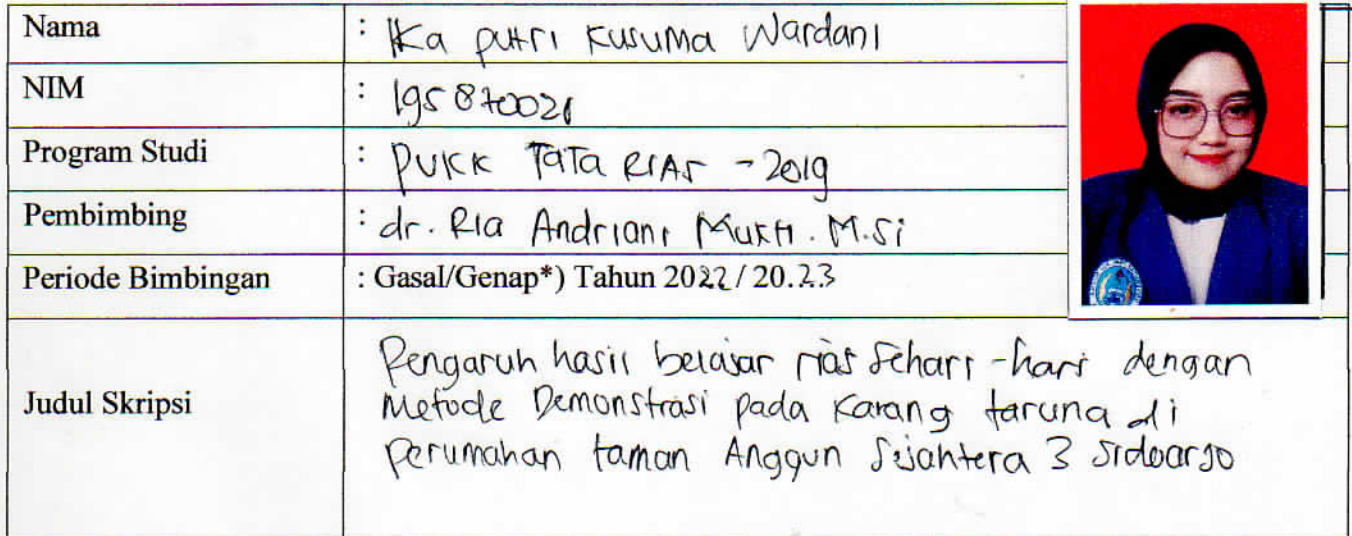 Nama : Ika putri Kusuma Wardani
NIM : 195870021
Program Studi : PVKK TaTa RIAS - 2019
Pembimbing : dr. Ria Andriani Mukti. M.Si
Periode Bimbingan : Gasal/Genap*) Tahun 2022 / 20.23
Judul Skripsi
Pengaruh hasil belajar rias Sehari-hari dengan
Metode Demonstrasi pada Karang taruna di
perumahan taman Anggun Sejahtera 3 Sidoarjo